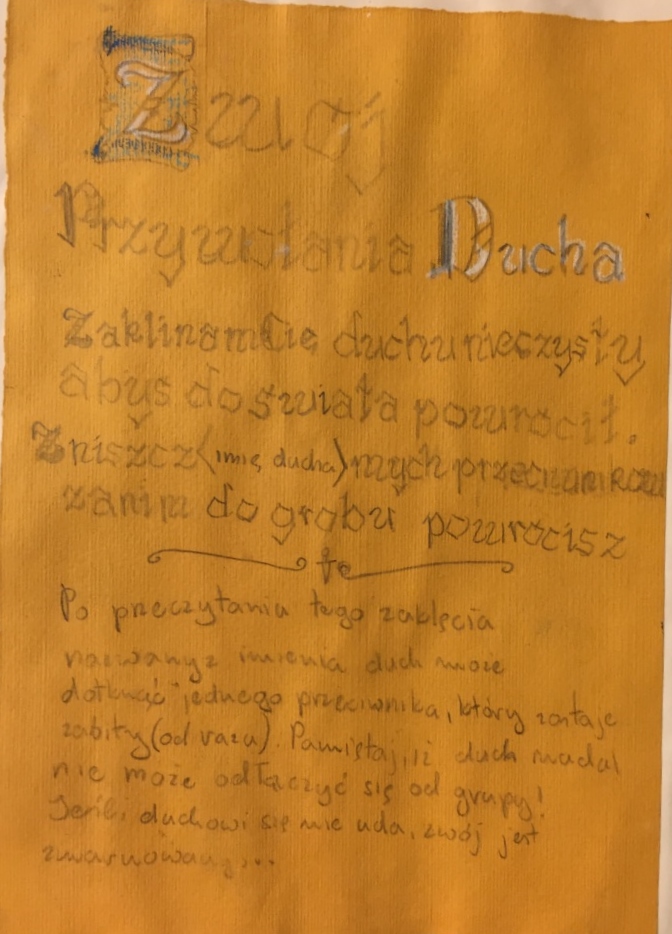 Zwój
Przywołania Ducha
Zaklinam Cię duchu nieczysty
abyś do świata powrócił.
Zniszcz (imię ducha) mych przeciwników
zanim do grobu powrócisz
te
Po przeczytaniu tego zaklęcia
nazwany z imienia duch może
dotknąć jednego przeciwnika, który zostaje
zabity (od razu). Pamiętaj, iż duch nadal
nie może odłączyć się od grupy!
Jeśli duchowi się nie uda, zwój jest
zmarnowany...